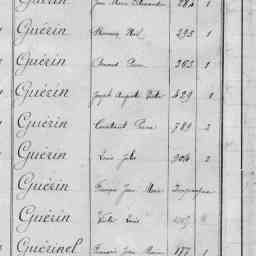 Guérin Jean Marie Alexandre 284 1
Guérin 295 1
Guérin Pierre 365 1
Guérin Joseph Auguste 429 1
Guérin Constant Pierre 789 2
Guérin Louis Jules 906 2
Guérin François Jean Marie
Guérin Victor Louis
Guérinel François Jean Marie 177 1